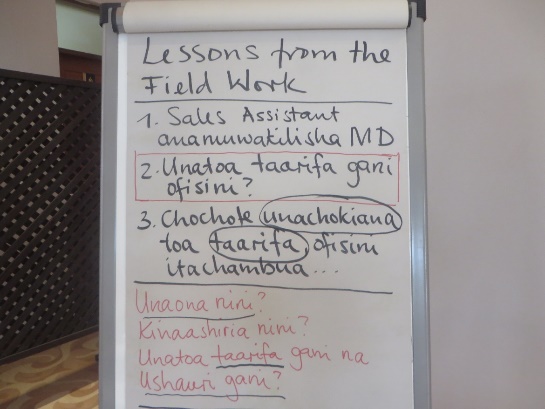 Lessons from the
Field Work
1. Sales Assistant
anamuwakilisha MD
2. Unatoa taarifa gani
ofisini?
3. Chochote unachokiona
toa taarifa, ofisini
itachambua...
Unaona nini?
Kinaashiria nini?
Unatoa taarifa gani na
Ushauri gani?